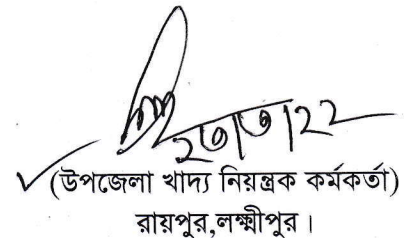 ২৩/৩/২২
(উপজেলা খাদ্য নিয়ন্ত্রক কর্মকর্তা)
রায়পুর,লক্ষ্মীপুর।